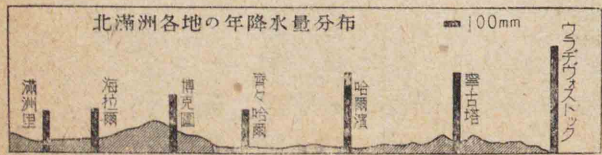 北滿洲各地の年降水量分布
100mm
滿洲里
海拉爾
博克圖
齊々哈爾
哈爾濱
寧古塔
ウラヂヴォストック